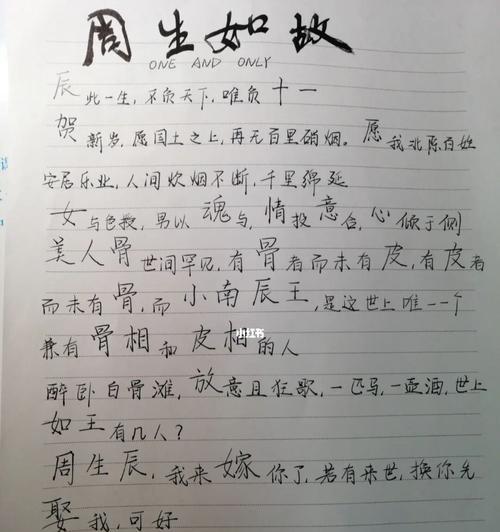 周生如故
ONE AND ONLY
辰此一生，不负天下，唯负十一
贺新岁，愿国土之上，再无百里硝烟。愿我北陈百姓
安居乐业，人间炊烟不断，千里绵延
女与色授，男以魂与，情投意合，心倾于侧
美人骨世间罕见，有骨者而未有皮，有皮者
而未有骨，而小南辰王，是这世上唯一一个
兼有骨相和皮相的人
小红书
醉卧白骨滩，放意且狂歌，一匹马，一壶酒，世上
如王有几人？
周生辰，我来嫁你了，若有来世，换你先
娶我，可好